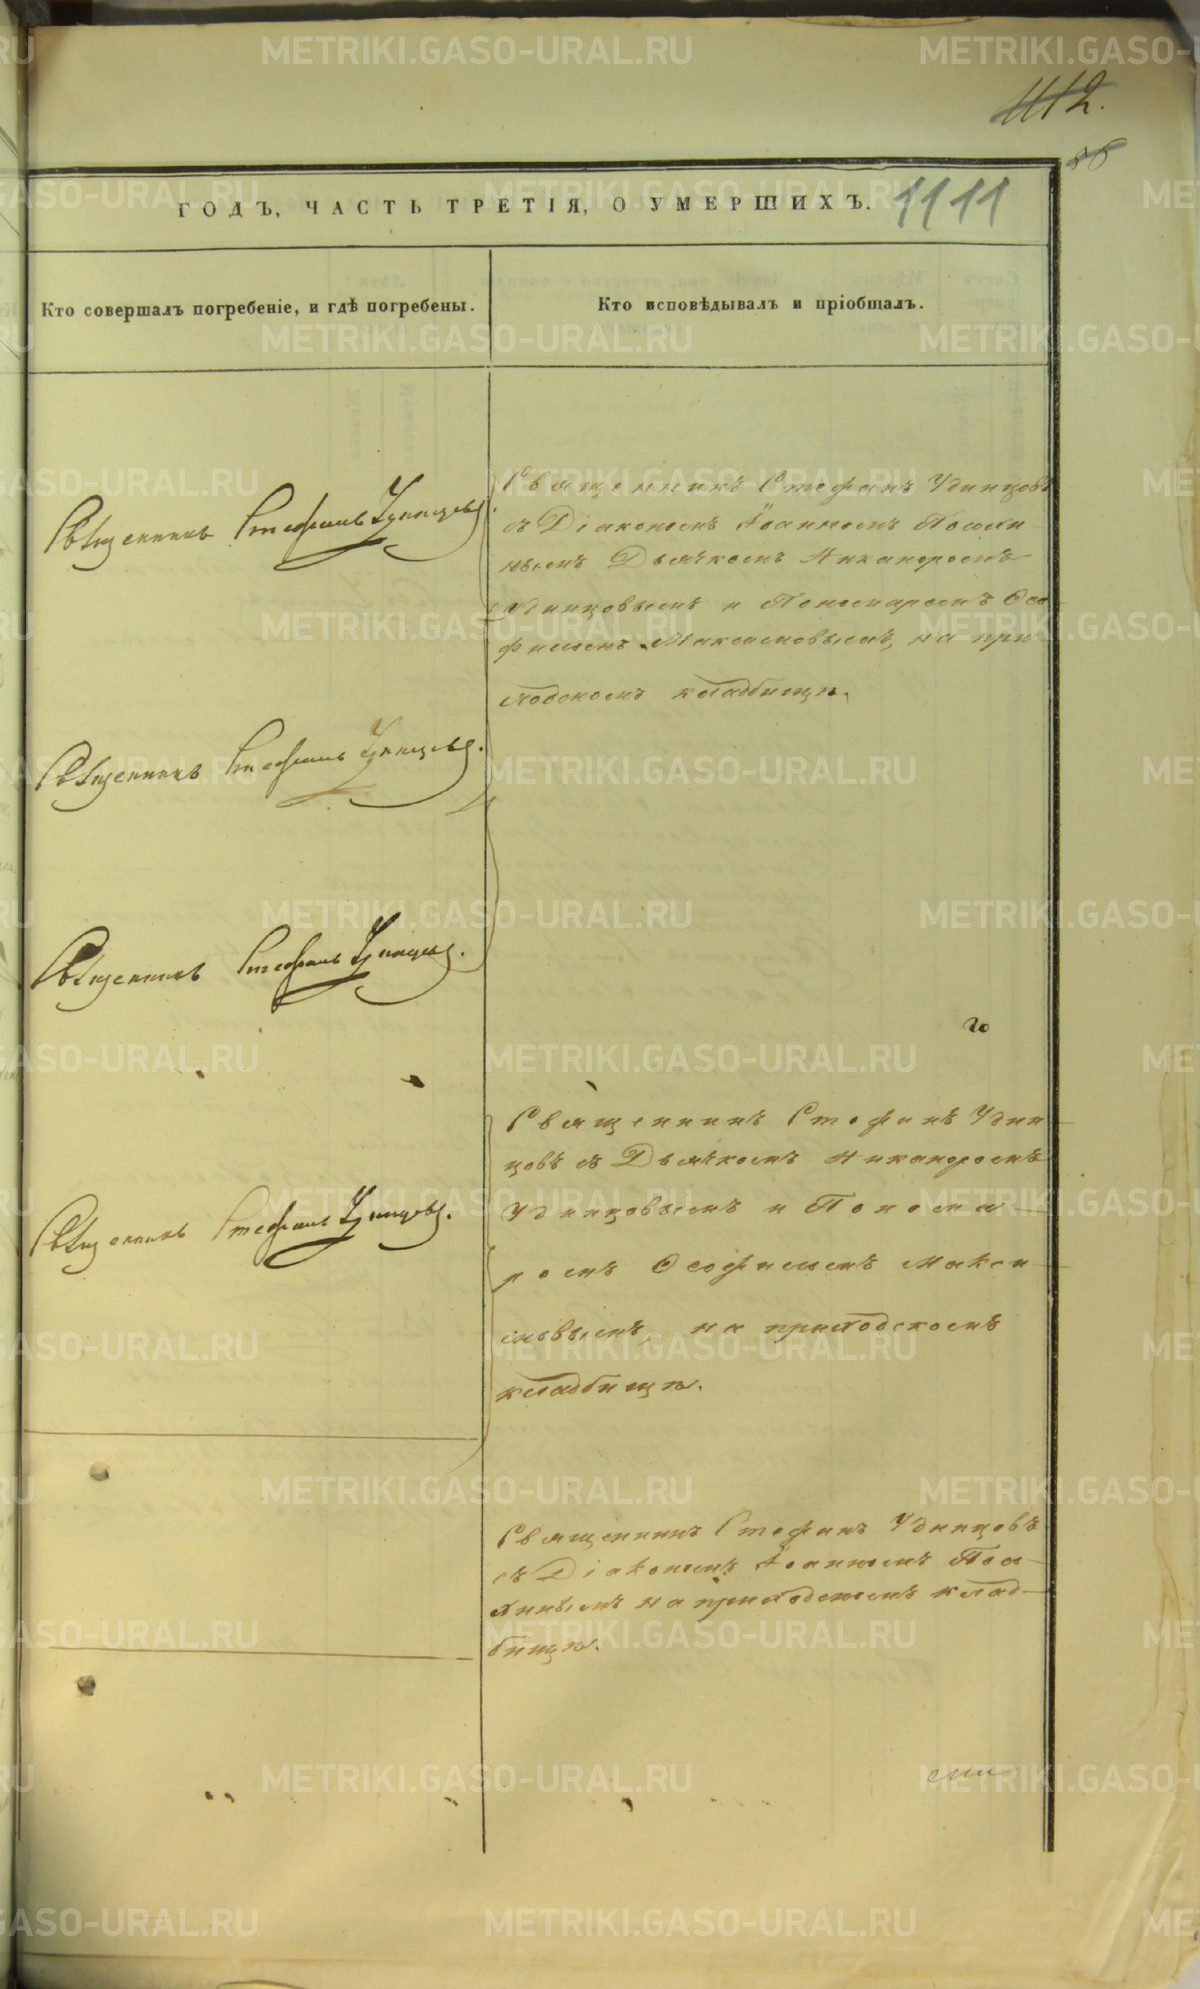 1112.
56
ГОДЪ, ЧАСТЬ ТРЕТІЯ, О УМЕРШИХЪ.
1111
Кто совершалъ погребеніе, и гдѣ погребены.
Кто исповѣдывалъ и пріобщалъ.
Священникъ Стефанъ Удинцовъ.
Священникъ Стефанъ Удинцовъ
съ Діакономъ Іоанномъ
нымъ Дьячкомъ Никаноромъ
Удинцовымъ и Пономаремъ Ѳео
филомъ Максимовымъ, на при
ходскомъ кладбищѣ.
Священникъ Стефанъ Удинцовъ.
Священникъ Стефанъ Удинцовъ.
Священникъ Стефанъ Удинцовъ.
Священникъ Стефанъ Удин
цовъ съ Дьячкомъ Никаноромъ
Удинцовымъ и Понома
ромъ Ѳеофиломъ Макси
мовымъ, на приходскомъ
кладбищѣ.
Священникъ Стефанъ Удинцовъ
съ Діакономъ Іоанномъ
на приходскомъ клад-
бищѣ.
METRIKI.GASO-URAL.RU